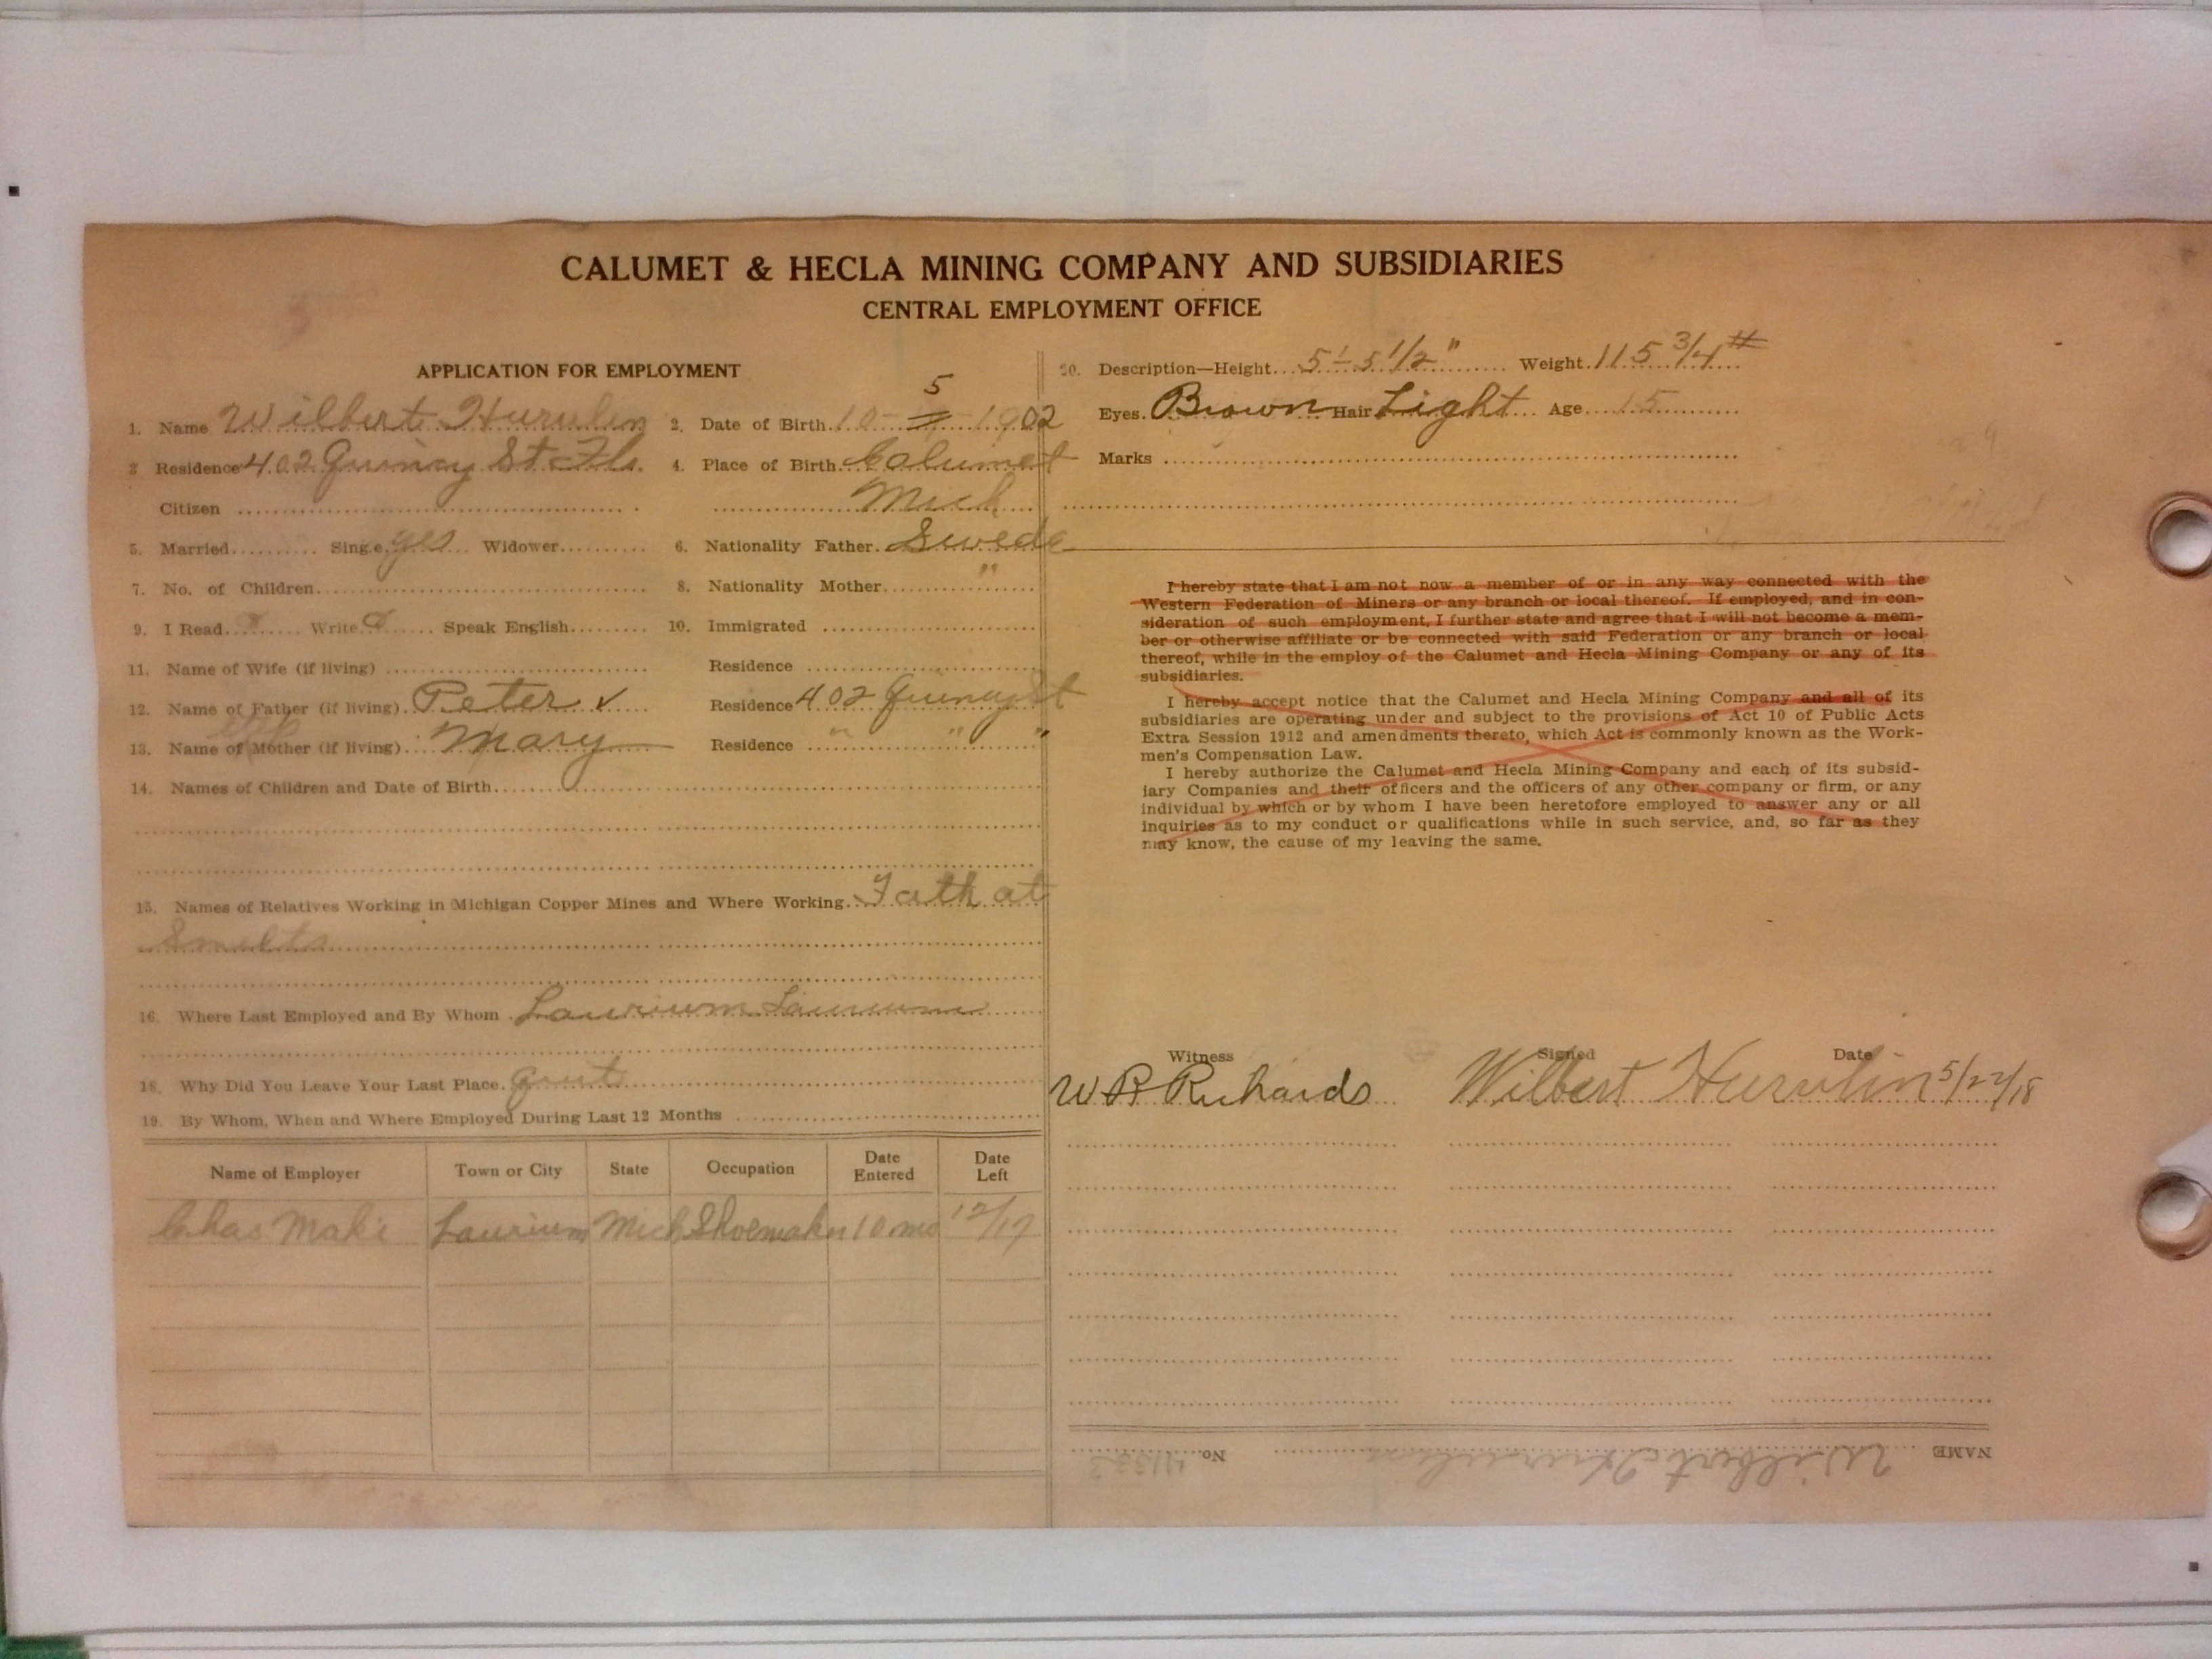 CALUMET & HECLA MINING COMPANY AND SUBSIDIARIES
CENTRAL EMPLOYMENT OFFICE
APPLICATION FOR EMPLOYMENT
1. Name Wilbert Hurulin 2. Date of Birth 10 - 5 - 1902
3 Residence 402 Quincy St 4. Place of Birth Calumet
Citizen Mich
5. Married Single yes Widower 6. Nationality Father Swede
7. No. of Children 8. Nationality Mother "
9. I Read Write Speak English 10. Immigrated
11. Name of Wife (if living) Residence
12. Name of Father (if living) Peter ✓ Residence 402 Quincy St
13. Name of Mother (if living) Mary Residence " " "
14. Names of Children and Date of Birth
15. Names of Relatives Working in Michigan Copper Mines and Where Working Fath at
Smelter
16. Where Last Employed and By Whom Laurium Laurium
18. Why Did You Leave Your Last Place
19. By Whom, When and Where Employed During Last 12 Months
Name of Employer Town or City State Occupation Date Entered Date Left
Chas Maki Laurium Mich Shoemaker 10 mo 12/17
20. Description—Height 5'-5 1/2" Weight 115 3/4 #
Eyes Brown Hair Light Age 15
Marks
I hereby state that I am not now a member of or in any way connected with the
Western Federation of Miners or any branch or local thereof. If employed, and in con-
sideration of such employment, I further state and agree that I will not become a mem-
ber or otherwise affiliate or be connected with said Federation or any branch or local
thereof, while in the employ of the Calumet and Hecla Mining Company or any of its
subsidiaries.
I hereby accept notice that the Calumet and Hecla Mining Company and all of its
subsidiaries are operating under and subject to the provisions of Act 10 of Public Acts
Extra Session 1912 and amendments thereto, which Act is commonly known as the Work-
men's Compensation Law.
I hereby authorize the Calumet and Hecla Mining Company and each of its subsid-
iary Companies and their officers and the officers of any other company or firm, or any
individual by which or by whom I have been heretofore employed to answer any or all
inquiries as to my conduct or qualifications while in such service, and, so far as they
may know, the cause of my leaving the same.
Witness Signed Date
W R Richards Wilbert Hurulin 5/22/18
NAME Wilbert Hurulin No.